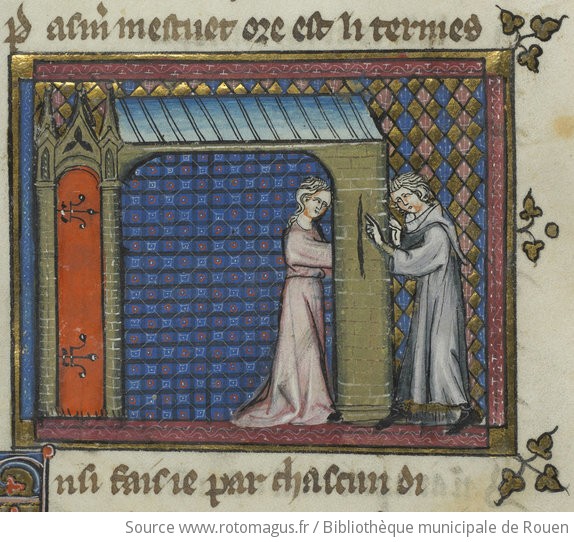 P asm̃ mestuet ore est li termes
nsi faisie par chascun di
Source www.rotomagus.fr / Bibliothèque municipale de Rouen